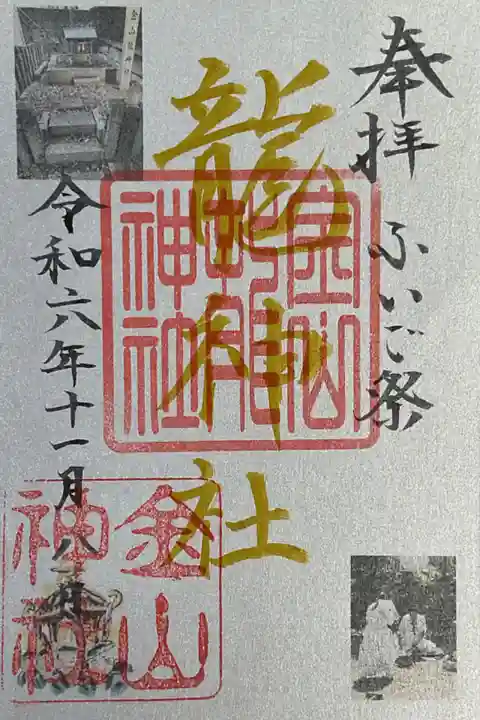 奉拝 ふいご祭
龍神社
令和六年十一月八日
金山
神社